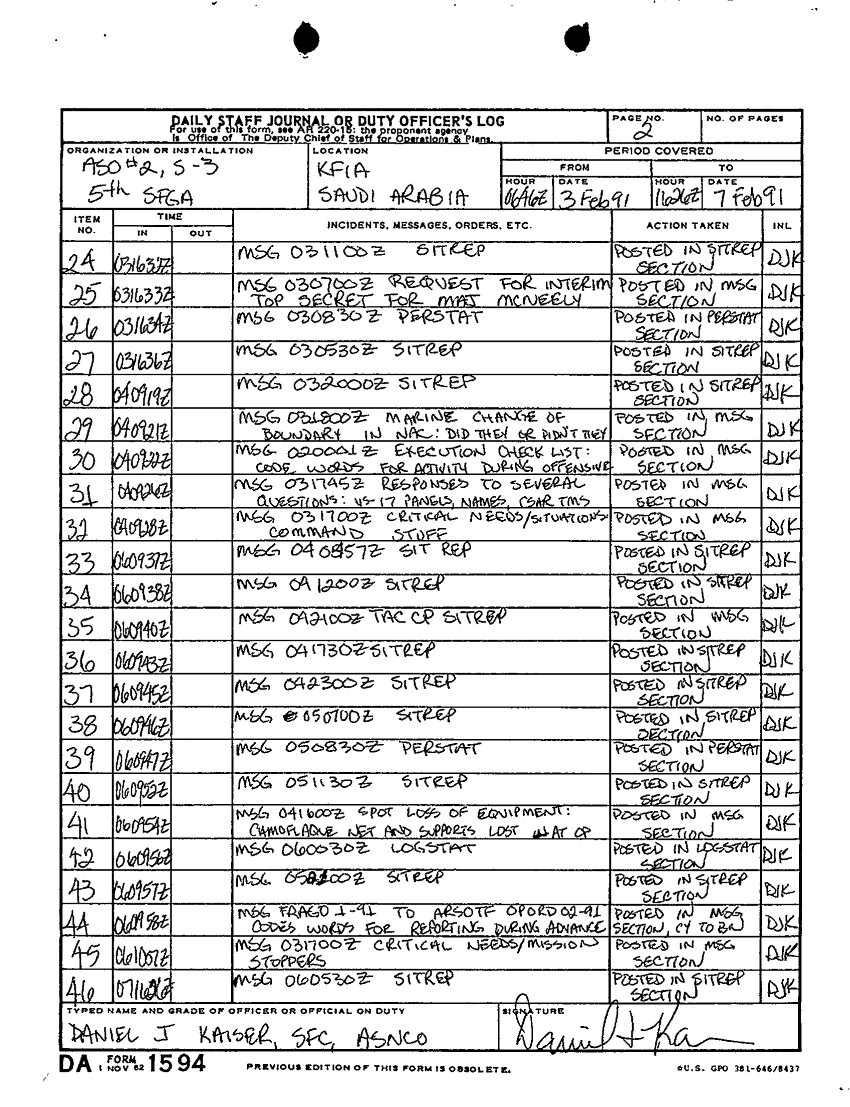 DAILY STAFF JOURNAL OR DUTY OFFICER'S LOG
For use of this form, see AR 220-15: the proponent agency
is Office of The Deputy Chief of Staff for Operations & Plans.
PAGE NO.
2
NO. OF PAGES
ORGANIZATION OR INSTALLATION
ASO #2, S-3
5th SFGA
LOCATION
KFIA
SAUDI ARABIA
PERIOD COVERED
FROM
TO
HOUR DATE HOUR DATE
0646Z 3 Feb 91 1626Z 7 Feb 91
ITEM NO. TIME IN OUT INCIDENTS, MESSAGES, ORDERS, ETC. ACTION TAKEN INL
24 031633Z MSG 031100Z SITREP POSTED IN SITREP DJK
SECTION
25 031633Z MSG 030700Z REQUEST FOR INTERIM POSTED IN MSG DJK
TOP SECRET FOR MAJ MCNEELY SECTION
26 031634Z MSG 030830Z PERSTAT POSTED IN PERSTAT DJK
SECTION
27 031636Z MSG 030530Z SITREP POSTED IN SITREP DJK
SECTION
28 040919Z MSG 032000Z SITREP POSTED IN SITREP DJK
SECTION
29 040921Z MSG 031800Z MARINE CHANGE OF POSTED IN MSG DJK
BOUNDARY IN NAC: DID THEY OR DIDN'T THEY SECTION
30 040922Z MSG 020001Z EXECUTION CHECK LIST: POSTED IN MSG DJK
CODE WORDS FOR ACTIVITY DURING OFFENSIVE SECTION
31 040926Z MSG 031745Z RESPONSES TO SEVERAL POSTED IN MSG DJK
QUESTIONS: VS-17 PANELS, NAMES, CSAR TMS SECTION
32 040928Z MSG 031700Z CRITICAL NEEDS/SITUATIONS POSTED IN MSG DJK
COMMAND STUFF SECTION
33 060937Z MSG 040857Z SIT REP POSTED IN SITREP DJK
SECTION
34 060938Z MSG 041200Z SITREP POSTED IN SITREP DJK
SECTION
35 060940Z MSG 042100Z TAC CP SITREP POSTED IN MSG DJK
SECTION
36 060943Z MSG 041730Z SITREP POSTED IN SITREP DJK
SECTION
37 060945Z MSG 042300Z SITREP POSTED IN SITREP DJK
SECTION
38 060946Z MSG 050700Z SITREP POSTED IN SITREP DJK
SECTION
39 060947Z MSG 050830Z PERSTAT POSTED IN PERSTAT DJK
SECTION
40 060952Z MSG 051130Z SITREP POSTED IN SITREP DJK
SECTION
41 060954Z MSG 041600Z SPOT LOSS OF EQUIPMENT: POSTED IN MSG DJK
CAMOFLAQUE NET AND SUPPORTS LOST AT OP SECTION
42 060956Z MSG 060030Z LOGSTAT POSTED IN LOGSTAT DJK
SECTION
43 060957Z MSG SITREP POSTED IN SITREP DJK
SECTION
44 060958Z MSG FRAGO 1-91 TO ARSOTF OPORD 02-91 POSTED IN MSG DJK
CODES WORDS FOR REPORTING DURING ADVANCE SECTION, CY TO BN
45 061007Z MSG 031700Z CRITICAL NEEDS/MISSION POSTED IN MSG DJK
STOPPERS SECTION
46 071626Z MSG 060530Z SITREP POSTED IN SITREP DJK
SECTION
TYPED NAME AND GRADE OF OFFICER OR OFFICIAL ON DUTY
DANIEL J KAISER, SFC, ASNCO
SIGNATURE
Daniel J Ka
DA FORM 1 NOV 62 1594
PREVIOUS EDITION OF THIS FORM IS OBSOLETE.
☆U.S. GPO 381-646/8437